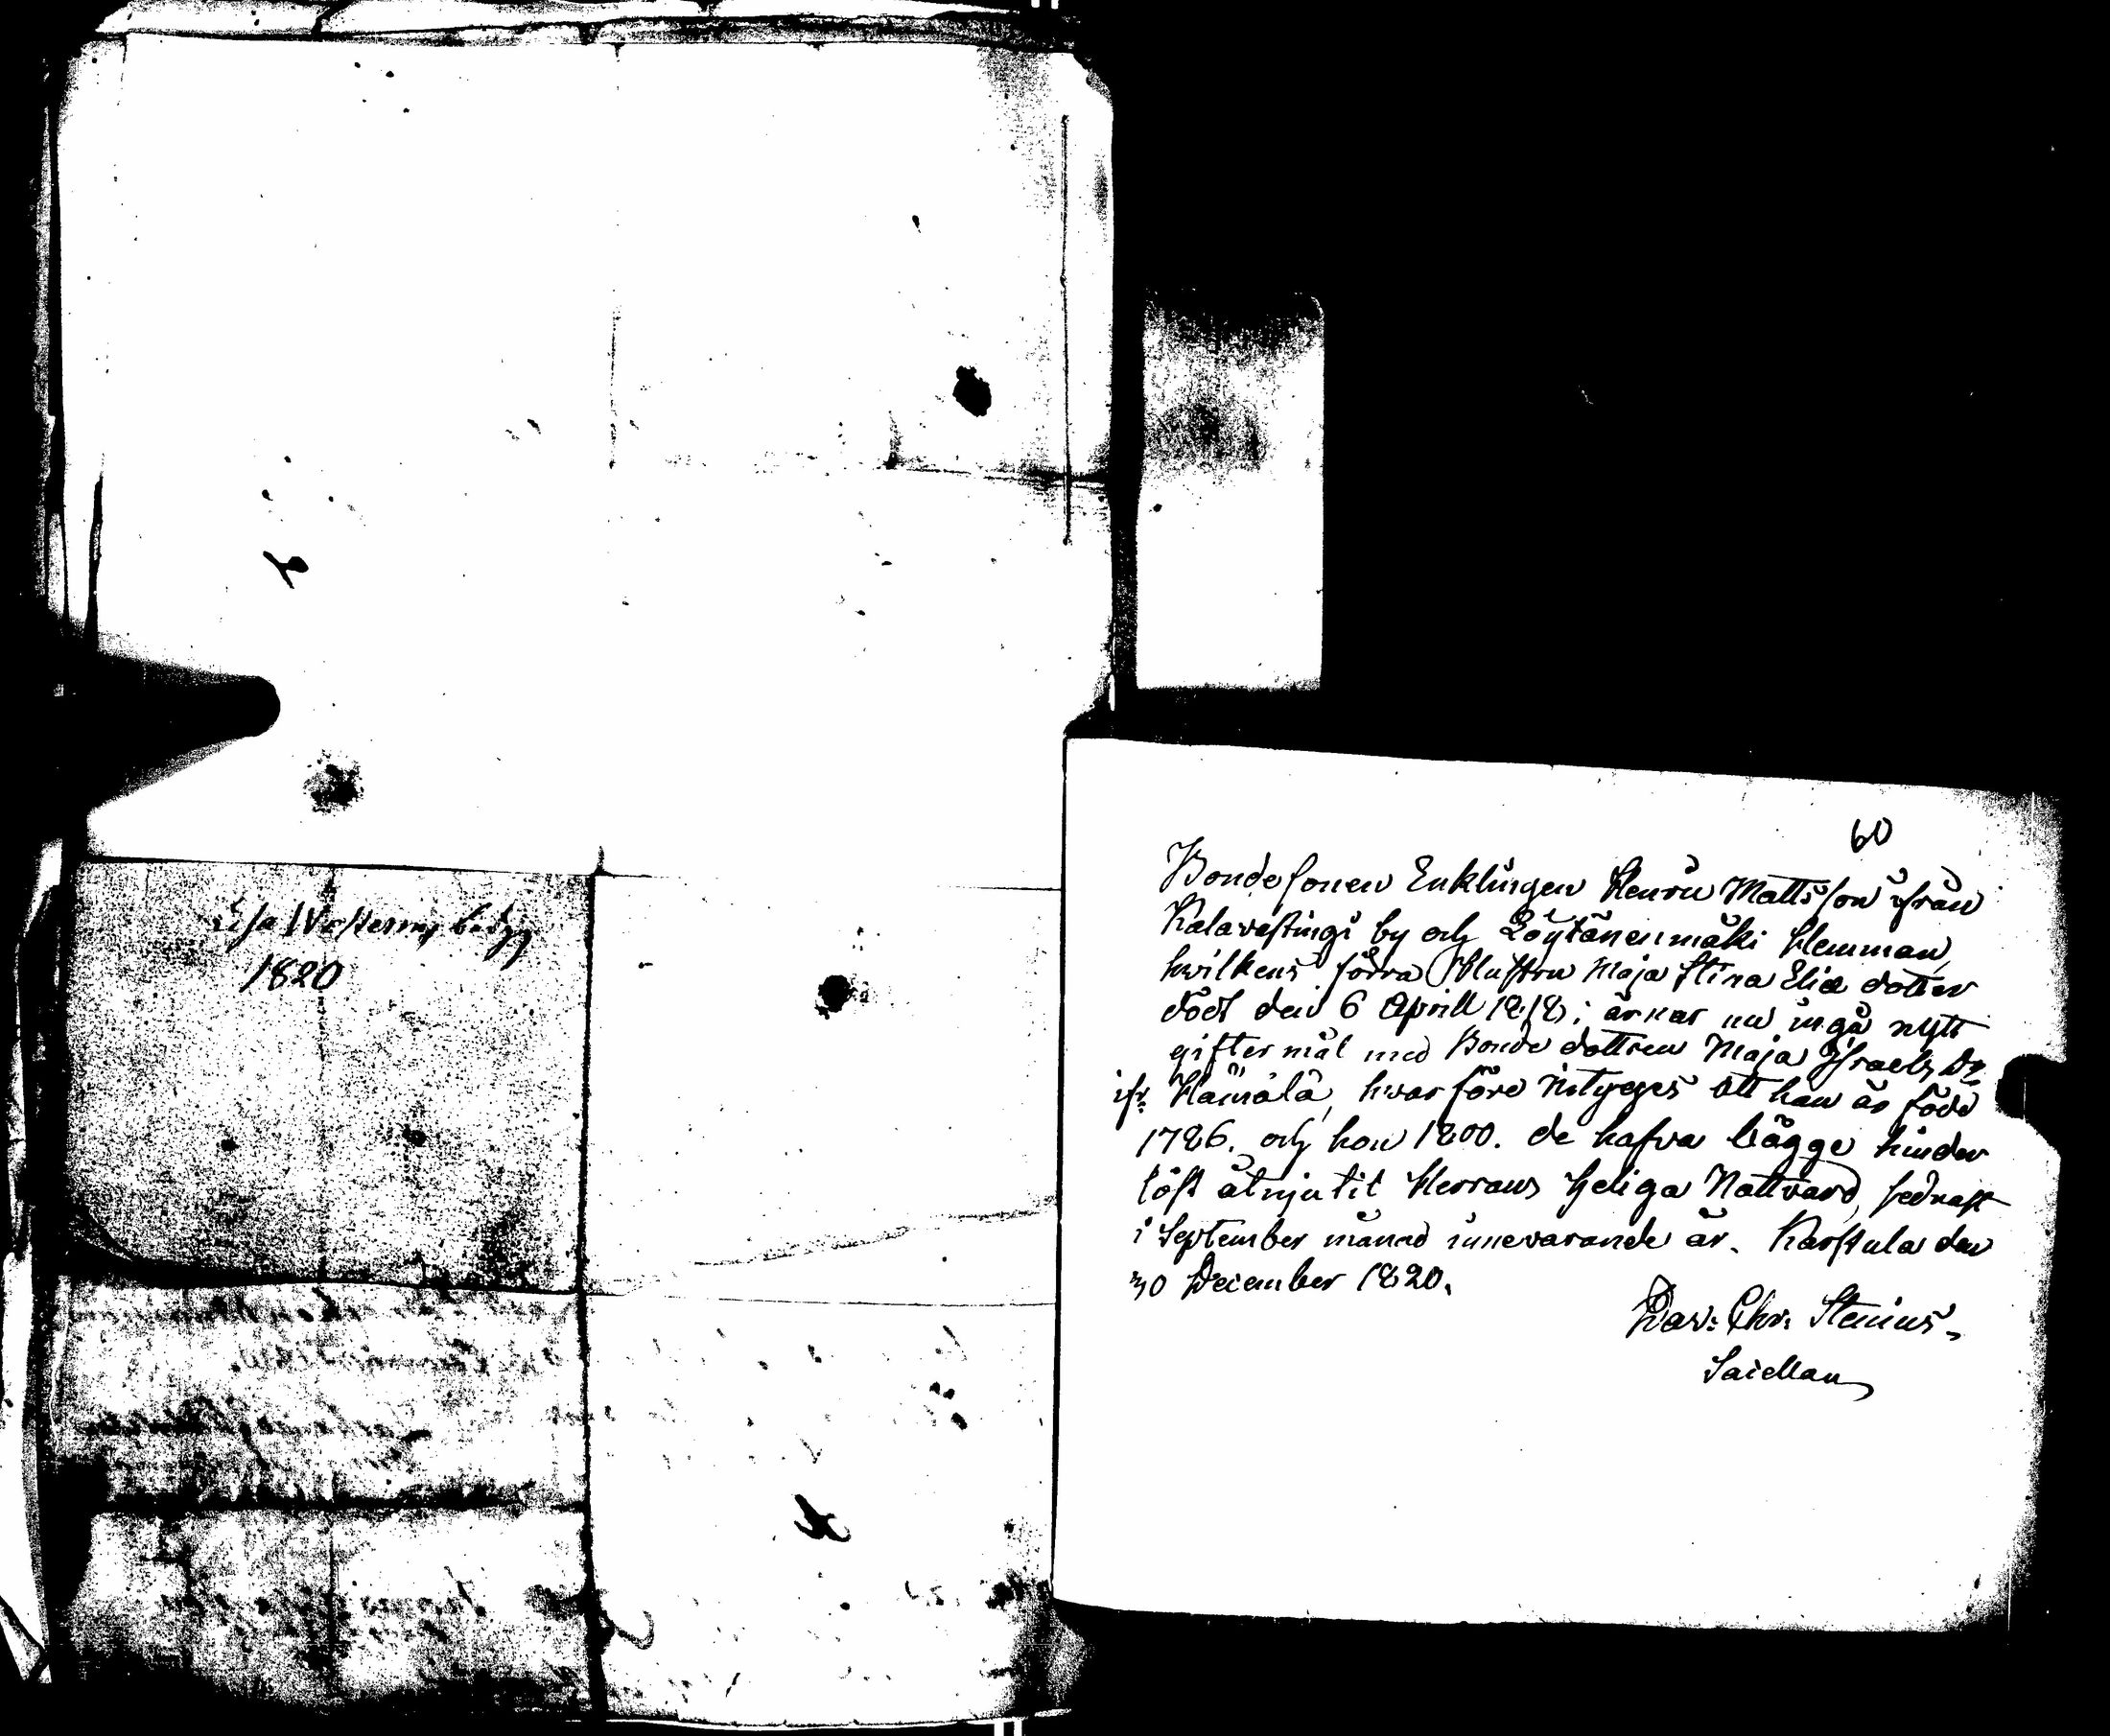 Lisa Westerns betyg
1820
60
Bondesonen Enklingen Henric Mattsson ifrån
Kalavestingi by och Löytänenmäki Hemman,
hvilkens förra Hustru Maja Stina Eliæ dotter
dödt den 6 Aprill 1818; ärnar nu ingå nytt
giftermål med Bonde dottren Maja Israels Dr
ifr. Hämälä, hvarföre intyges att han är född
1786. och hon 1800. de hafva bägge hinder
löst åtnjutit Herrans Heliga Nattvard, sednast
i September månad innevarande år. Karstula den
30 December 1820.
Dav: Chr: Stenius.
Sacellan